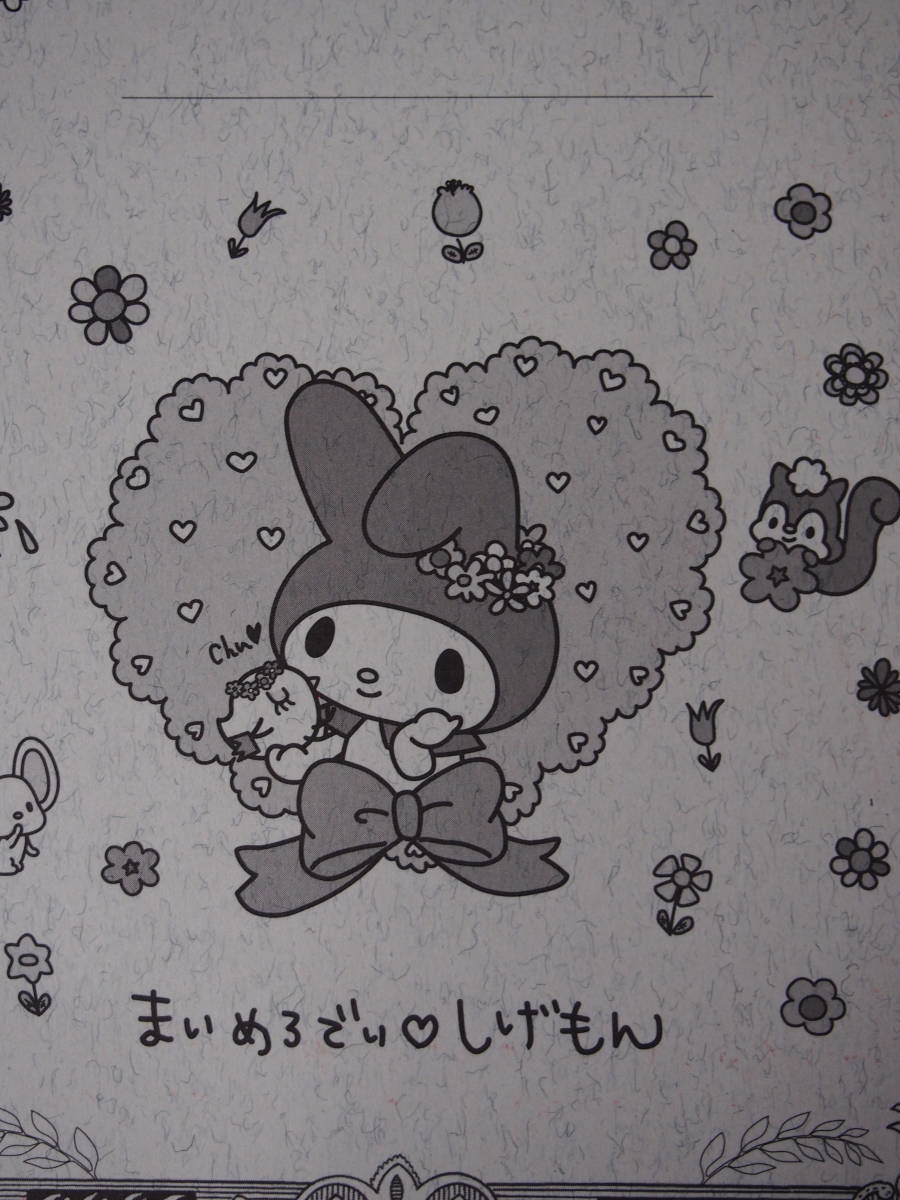 Chu♥
まいめろでぃ♡しげもん